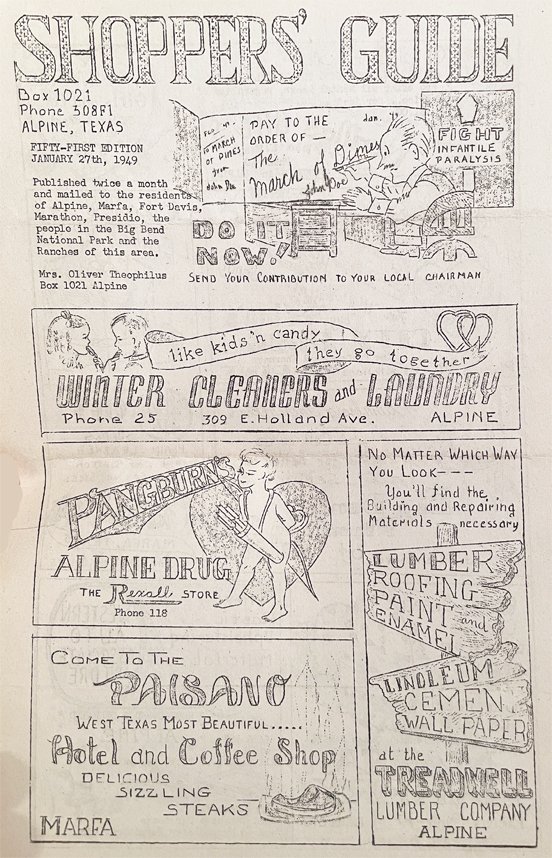 SHOPPERS' GUIDE
Box 1021
Phone 308F1
ALPINE, TEXAS
FIFTY-FIRST EDITION
JANUARY 27th, 1949
Published twice a month
and mailed to the residents
of Alpine, Marfa, Fort Davis,
Marathon, Presidio, the
people in the Big Bend
National Park and the
Ranches of this area.
Mrs. Oliver Theophilus
Box 1021 Alpine
TO MARCH
OF DIMES
from
John Doe
PAY TO THE
ORDER OF —
Jan.
The
March of Dimes
John Doe
FIGHT
INFANTILE
PARALYSIS
DO IT
NOW!
SEND YOUR CONTRIBUTION TO YOUR LOCAL CHAIRMAN
like kids'n candy
they go together
WINTER CLEANERS and LAUNDRY
Phone 25 309 E.Holland Ave. ALPINE
PANGBURN'S
ALPINE DRUG
THE Rexall STORE
Phone 118
COME TO THE
PAISANO
WEST TEXAS MOST BEAUTIFUL.....
Hotel and Coffee Shop
DELICIOUS
SIZZLING
STEAKS
MARFA
NO MATTER WHICH WAY
YOU LOOK---
You'll find the
Building and Repairing
Materials necessary
LUMBER
ROOFING
PAINT and
ENAMEL
LINOLEUM
CEMEN
WALL PAPER
at the
TREADWELL
LUMBER COMPANY
ALPINE